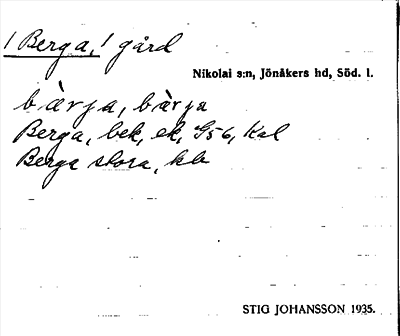 / Berga, / gård
Nikolai s:n, Jönåkers hd, Söd. l.
bàrja, bàrja
Berga, bek, ek, G56, Kal
Berga stora, kb
STIG JOHANSSON 1935.